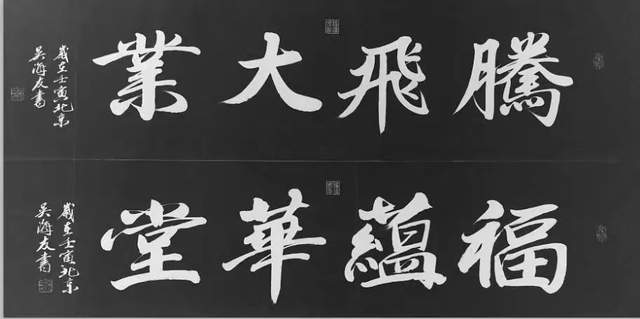 騰飛大業
歲在壬寅北京
吳海友書
福蘊華堂
歲在壬寅北京
吳海友書